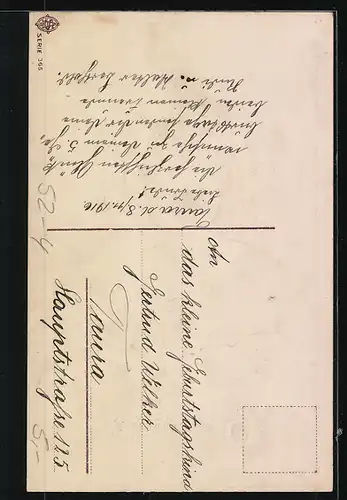 SERIE 365
Taura d. 8/11. 1916
Liebe Trude!
Die herzlichsten Glück-
wünsche zu Deinem 5. Ge-
burtstage senden Dir Deine
beiden kleinen Freunde
Rudi u. Walter
An
das kleine Geburtstagskind
Gertrud Welker
Taura
Hauptstraße 125
52-4
5,-